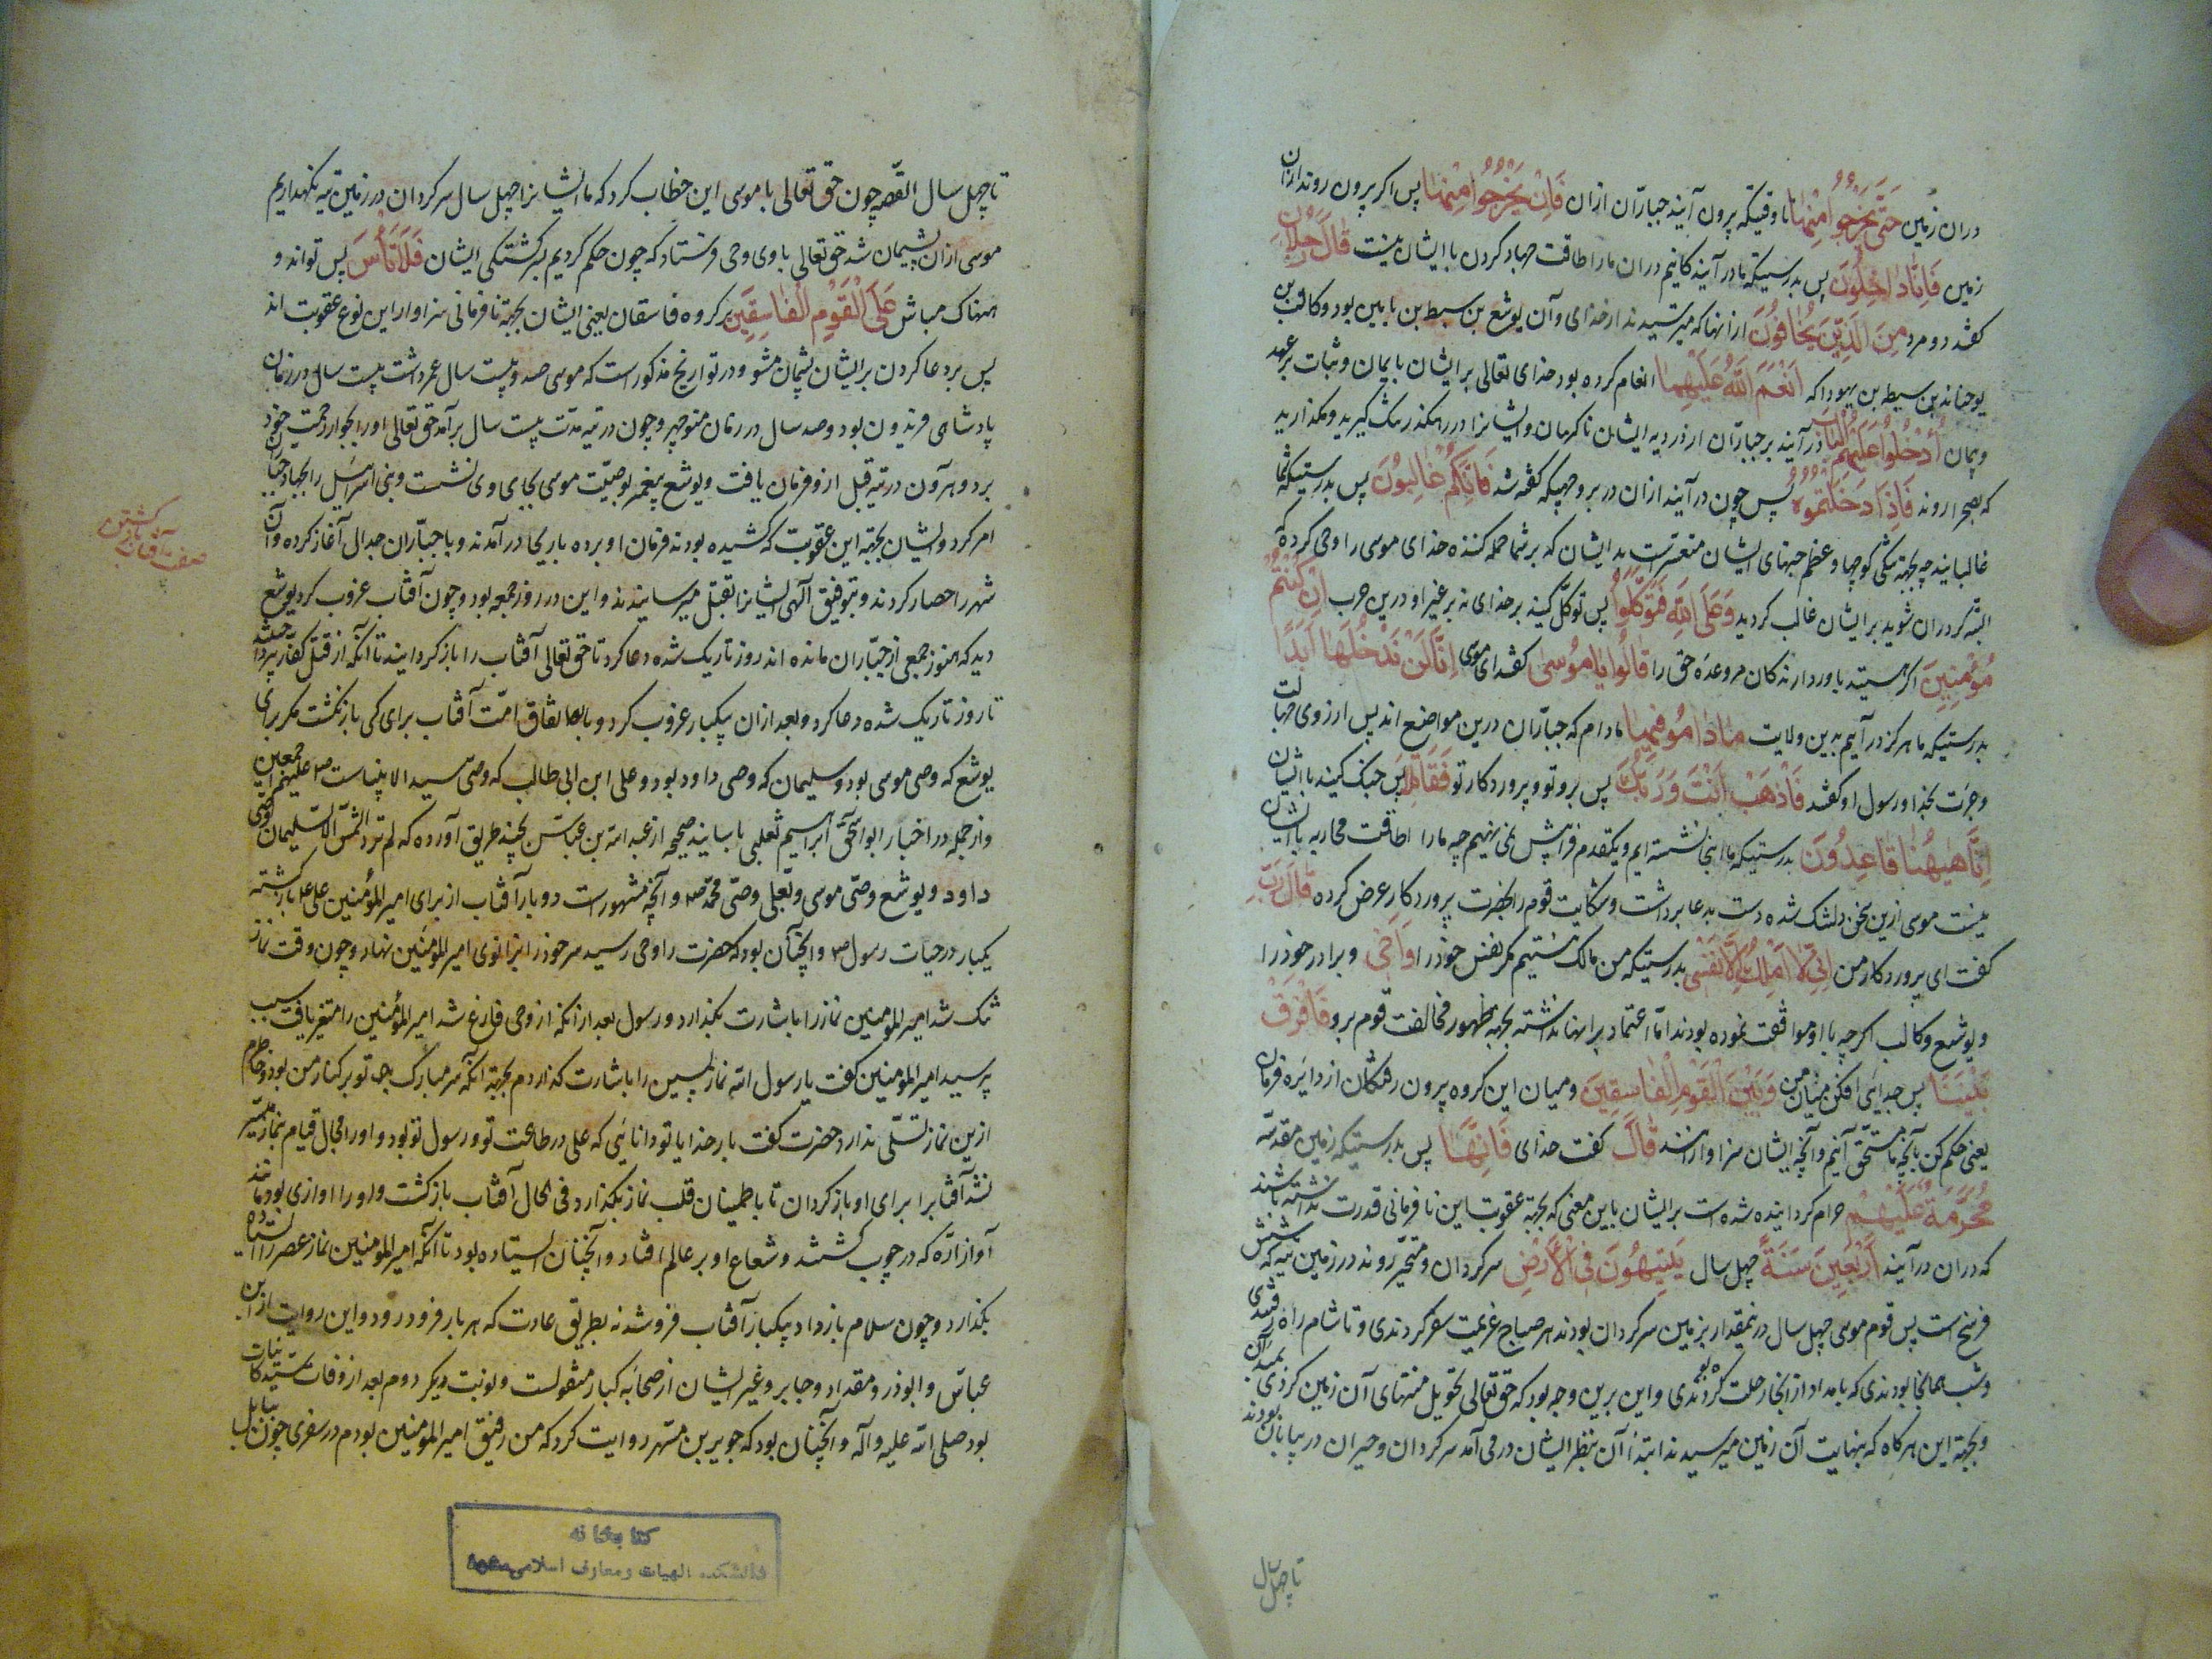 دران زمین حَتَّى يَخْرُجُوا مِنْهَا تا وقتیکه بیرون آیند جبّاران ازان فَاِنْ يَخْرُجُوا مِنْهَا پس اکر بیرون روند ازان
زمین فَاِنَّا دَاخِلُونَ پس بدرستیکه ما در آیندکانیم دران ما را طاقت جهاد کردن با ایشان نیست قَالَ رَجُلَانِ
کفتند دو مرد مِنَ الَّذِينَ يَخَافُونَ ازانها که میترسیدند از خدای و آن یوشع بن سبط بن یامین بود و کالب بن
یوحناند بن سبط بن یهودا که اَنْعَمَ اللّٰهُ عَلَيْهِمَا انعام کرده بود خدای تعالی بر ایشان بایمان و ثبات بر عهد
و پیمان اُدْخُلُوا عَلَيْهِمُ الْبَابَ در آیند بر جبّاران از در دیه ایشان ناکهان و ایشانرا در رهکذر تنک کیرید و مکذارید
که بصحرا روند فَاِذَا دَخَلْتُمُوهُ پس چون در آیند ازان در بر وجهیکه کفته شد فَاِنَّكُمْ غَالِبُونَ پس بدرستیکه شما
غالبانید چه بجهة تنکی کوچها و عظم جثهای ایشان متعسّرست بدیشان که بر شما حمله کنند خدای موسی را وحی کرده که
البته کر دران شوید بر ایشان غالب کردید وَعَلَى اللّٰهِ فَتَوَكَّلُوا پس توکّل کنید بر خدای نه بر غیر او درین حرب اِنْ كُنْتُمْ
مُؤْمِنِينَ اکر هستید باور دارندکان مر وعدهٔ حق را قَالُوا يَا مُوسٰى کفتند ای موسی اِنَّا لَنْ نَدْخُلَهَا اَبَدًا
بدرستیکه ما هرکز در آییم بدین ولایت مَا دَامُوا فِيهَا مادام که جبّاران درین مواضع اند پس از روی جهالت
و جرات بخدا و رسول او کفتند فَاذْهَبْ اَنْتَ وَرَبُّكَ پس برو تو و پروردکار تو فَقَاتِلَا پس جنک کنید با ایشان
اِنَّا هٰيهُنَا قَاعِدُونَ بدرستیکه ما اینجا نشسته ایم و یکقدم فرا پیش نمی نهیم چه ما را طاقت محاربه با ایشان
نیست موسی ازین سخن دلتنک شده دست بدعا برداشت و شکایت قوم را بحضرت پروردکار عرض کرده قَالَ رَبِّ
کفت ای پروردکار من اِنِّي لَا اَمْلِكُ اِلَّا نَفْسِي بدرستیکه من مالک نیستیم مکر نفس خود را وَاَخِي و برادر خود را
و یوشع و کالب اکر چه با او موافقت نموده بودند امّا اعتماد بر اینها نداشته بجهة ظهور مخالفت قوم برو فَافْرُقْ
بَيْنَنَا پس جدائی افکن میان من وَبَيْنَ الْقَوْمِ الْفَاسِقِينَ و میان این کروه بیرون رفتکان از دایره فرمان
یعنی حکم کن بآنچه ما مستحق آنیم و آنچه ایشان سزاوار آنند قَالَ کفت خدای فَاِنَّهَا پس بدرستیکه زمین مقدّسه
مُحَرَّمَةٌ عَلَيْهِمْ حرام کردانیده شده است بر ایشان باین معنی که بجهة عقوبت این نافرمانی قدرت نداشته باشند
که دران در آیند اَرْبَعِينَ سَنَةً چهل سال يَتِيهُونَ فِي الْاَرْضِ سرکردان و متحیّر روند در زمین تیه که شش
فرسخ است پس قوم موسی چهل سال درینمقدار زمین سرکردان بودند هر صباح عزیمت سفر کردندی و تا شام راه رفتندی
و شب همانجا بودندی که بامداد از انجا رحلت کردندی و این برین وجه بود که حق تعالی تحویل منتهای آن زمین کردی
و بجهة این هرکاه که بنهایت آن زمین میرسیدند ابتدای آن بنظر ایشان در می آمد سرکردان و حیران در بیابان بودند
تا چهل سال
تا چهل سال القصه چون حق تعالی با موسی این خطاب کرد که ما ایشانرا چهل سال سرکردان در زمین تیه نکهداریم
موسی ازان پشیمان شد حق تعالی باوی وحی فرستاد که چون حکم کردیم بسرکشتکی ایشان فَلَا تَأْسَ پس تو اندو
هناک مباش عَلَى الْقَوْمِ الْفَاسِقِينَ بر کروه فاسقان یعنی ایشان بجهة نافرمانی سزاوار این نوع عقوبت اند
پس بر دعا کردن بر ایشان پشیمان مشو و در تواریخ مذکور است که موسی صد و بیست سال عمر داشت بیست سال در زمان
پادشاهی فریدون بود و صد سال در زمان منوچهر و چون در تیه مدّت بیست سال برآمد حق تعالی او را بجوار رحمت خود
برد و هرون در تیه قبل ازو فرمان یافت و یوشع پیغمبر بوصیّت موسی بجای وی نشست و بنی اسرائیل را بجهاد جباران
امر کرد و ایشان بجهة این عقوبت که کشیده بودند فرمان او برده باریحا در آمدند و با جبّاران جدال آغاز کرده و آن
شهر را حصار کردند و بتوفیق آلهی ایشانرا بقتل میرسانیدند و این در روز جمعه بود و چون آفتاب غروب کرد یوشع
دید که هنوز جمعی از جبّاران مانده اند روز تاریک شده دعا کرد تا حق تعالی آفتاب را باز کردانید تا آنکه از قتل کفار پرداختند
تا روز تاریک شده دعا کرد و بعد ازان بیکبار غروب کرد و باتفاق امّت آفتاب برای کسی باز نکشت مکر برای
یوشع که وصی موسی بود و سلیمان که وصی داود بود و علی ابن ابی طالب که وصی سید الانبیاست ص علیهم اجمعین
و ازجمله در اخبار ابو اسحق ابراهیم ثعلبی باسانید صحیحه از عبد الله بن عباس بچند طریق آورده که لم ترد الشمس الا لسلیمان وصی
داود و یوشع وصی موسی و لعلی وصی محمد ص و آنچه مشهورست دو بار آفتاب از برای امیر المؤمنین علی ع باز کشته
یکبار در حیات رسول ص و آنچنان بود که حضرت را وحی رسید سر خود را بزانوی امیر المؤمنین نهاد و چون وقت نماز
تنک شد امیر المؤمنین نماز را باشارت بکذارد و رسول بعد ازانکه از وحی فارغ شد امیر المؤمنین را متغیّر یافت سبب
پرسید امیر المؤمنین کفت یا رسول الله نماز پسین را باشارت کذاردم بجهة آنکه سر مبارک تو بر کنار من بود و خاطرم
ازین نماز تسلّی ندارد حضرت کفت بار خدایا تو دانایی که علی در طاعت تو و رسول تو بود و او را مجال قیام بنماز میسّر
نشد آفتابرا برای او باز کردان تا باطمینان قلب نماز بکذارد فی الحال آفتاب باز کشت و او را اوازی بود مانند
آواز ارّه که در چوب کشند و شعاع او بر عالم افتاد و آنچنان ایستاده بود تا آنکه امیر المؤمنین نماز عصر را ایستاده
بکذارد و چون سلام باز داد بیکبار آفتاب فرو شد نه بطریق عادت که هر بار فرو در رود و این روایت از ابن
عباس و ابوذر و مقداد و جابر و غیر ایشان از صحابه کبار منقولست و نوبت دیکر دوم بعد از وفات سیّد کاینات
بود صلی الله علیه و آله و آنچنان بود که جویریة بن مسهر روایت کرد که من رفیق امیر المؤمنین بودم در سفری چون ببابل
آفتاب
کتابخانه
دانشکده الهیات و معارف اسلامی مشهد